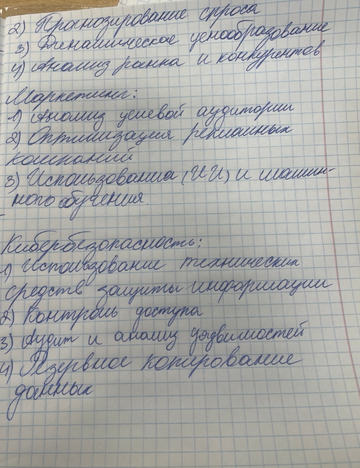 2) Прогнозирование спроса
3) Динамическое ценообразование
4) Анализ рынка и конкурентов
Маркетинг:
1) Анализ целевой аудитории
2) Оптимизация рекламных
кампаний
3) Использования (ИИ) и машин-
ного обучения
Кибербезопасность:
1) Использование технических
средств защиты информации
2) Контроль доступа
3) Аудит и анализ уязвимостей
4) Резервное копирование
данных